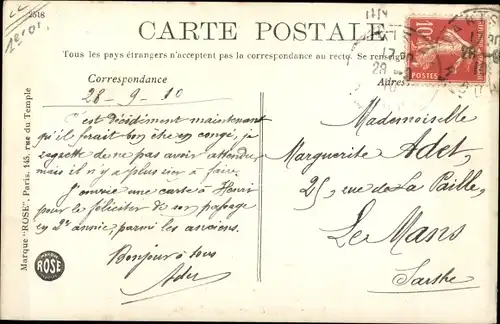 2518
CARTE POSTALE
Tous les pays étrangers n'acceptent pas la correspondance au recto. Se renseign
Correspondance
Adres
28-9-10
C'est décidément maintenant
qu'il ferait bon être en congé, je
regrette de ne pas avoir attendu
mais il n'y a plus rien à faire.
J'envoie une carte à Henri
pour le féliciter de son passage
en 2e année, parmi les anciens.
Bonjour à tous
Mademoiselle
Marguerite Adet,
25, rue de La Paille,
Le Mans
Sarthe
10c
POSTES
Marque "ROSE", Paris. 145, rue du Temple
ROSE